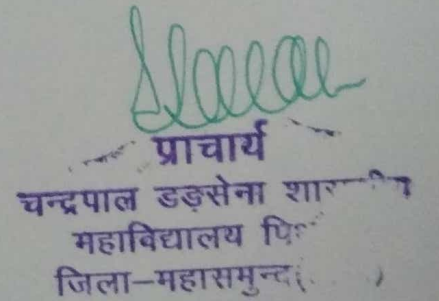 प्राचार्य
चन्द्रपाल डड़सेना
महाविद्यालय
जिला-महासमुन्द